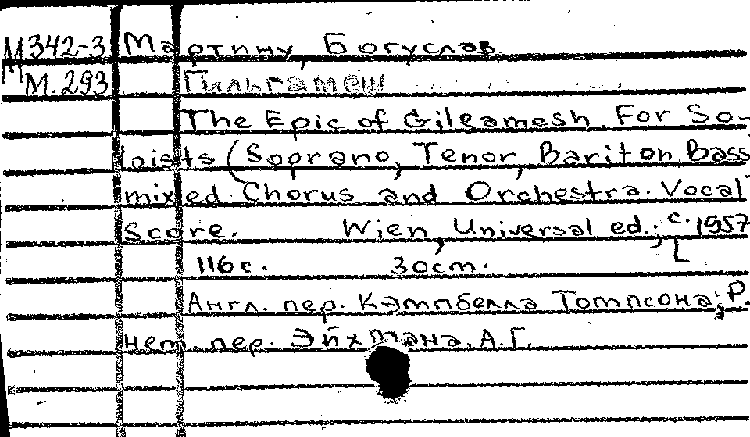 М342-3 Мартину, Богуслав
М.293 Гильгамеш
The Epic of Gilgamesh. For So-
loists (Soprano, Tenor, Bariton, Bass
mixed Chorus and Orchestra. Vocal
Score. Wien, Universal ed., c. 1957
116 с. 30cm.
Англ. пер. Кэмпбелла Томпсона; Р.
нем. пер. Эйхмана. А.Г.